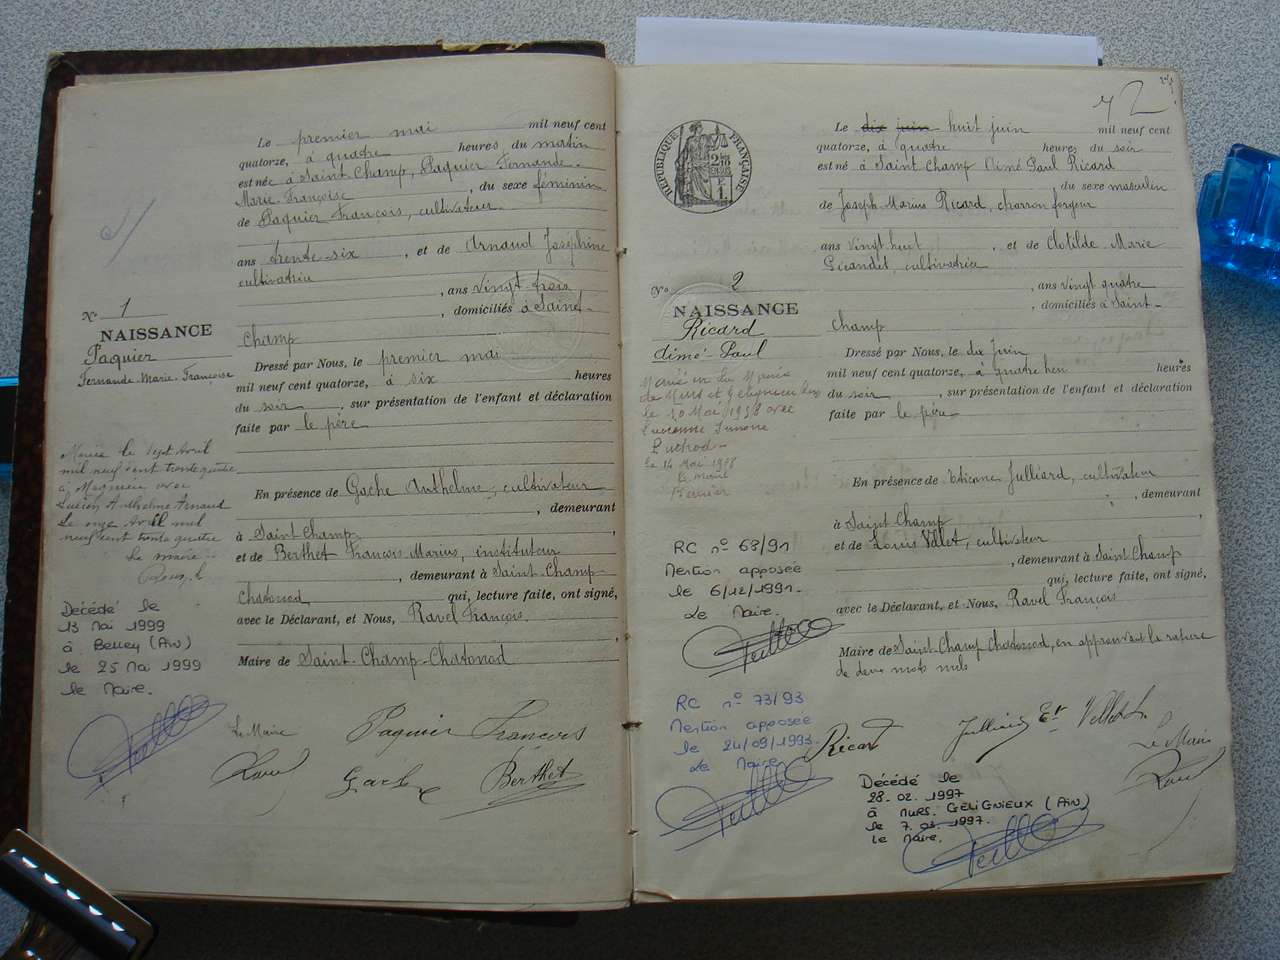 Le premier mai mil neuf cent
quatorze, à quatre heures du matin
est née à Saint Champ, Paquier Fernande
Marie Françoise, du sexe féminin
de Paquier François, cultivateur
ans trente-six, et de Arnaud Joséphine
cultivatrice
, ans vingt-trois
, domiciliés à Saint-
Champ
Dressé par Nous, le premier mai
mil neuf cent quatorze, à six heures
du soir, sur présentation de l'enfant et déclaration
faite par le père
En présence de Gache Anthelme, cultivateur
, demeurant
à Saint Champ,
et de Berthet François Marius, instituteur
, demeurant à Saint-Champ-
Chatonod qui, lecture faite, ont signé,
avec le Déclarant, et Nous, Ravel François
Maire de Saint-Champ-Chatonod
Le Maire
Paquier François
Ravel
Gache
Berthet
No 1
NAISSANCE
Paquier
Fernande-Marie-Françoise
Mariée le sept avril
mil neuf cent trente quatre
à Magnieu avec
Lucien Anthelme Arnaud
Le onze Avril mil
neuf cent trente quatre
Le maire
Décédé le
13 Mai 1999
à Belley (Ain)
le 25 Mai 1999
le Maire.
2
RÉPUBLIQUE FRANÇAISE
Le dix juin huit juin mil neuf cent
quatorze, à quatre heures du soir
est né à Saint Champ Aimé Paul Ricard
du sexe masculin
de Joseph-Marius Ricard, charron forgeur
ans vingt huit, et de Clotilde Marie
cultivatrice
, ans vingt quatre
, domiciliés à Saint-
Champ
Dressé par Nous, le dix juin
mil neuf cent quatorze, à quatre heures
du soir, sur présentation de l'enfant et déclaration
faite par le père
En présence de Etienne Julliard, cultivateur
, demeurant
à Saint Champ
et de Louis Vallet, cultivateur
, demeurant à Saint Champ
qui, lecture faite, ont signé,
avec le Déclarant, et Nous, Ravel François
Maire de Saint-Champ Chatonod, en approuvant la rature
de deux mots nuls
Ricard
Le Maire
Ravel
No 2
NAISSANCE
Ricard
Aimé-Paul
Marié en la Mairie
de Murs et Gélignieux
le 10 Mai 1938 avec
Simone
le 14 Mai 1938
Le Maire
RC no 68/91
Mention apposée
le 6/12/1991.
Le Maire.
RC no 73/93
Mention apposée
le 24/09/1993.
Le Maire
Décédé le
28.02.1997
à MURS. GÉLIGNIEUX (AIN)
le 7.03.1997.
le Maire.